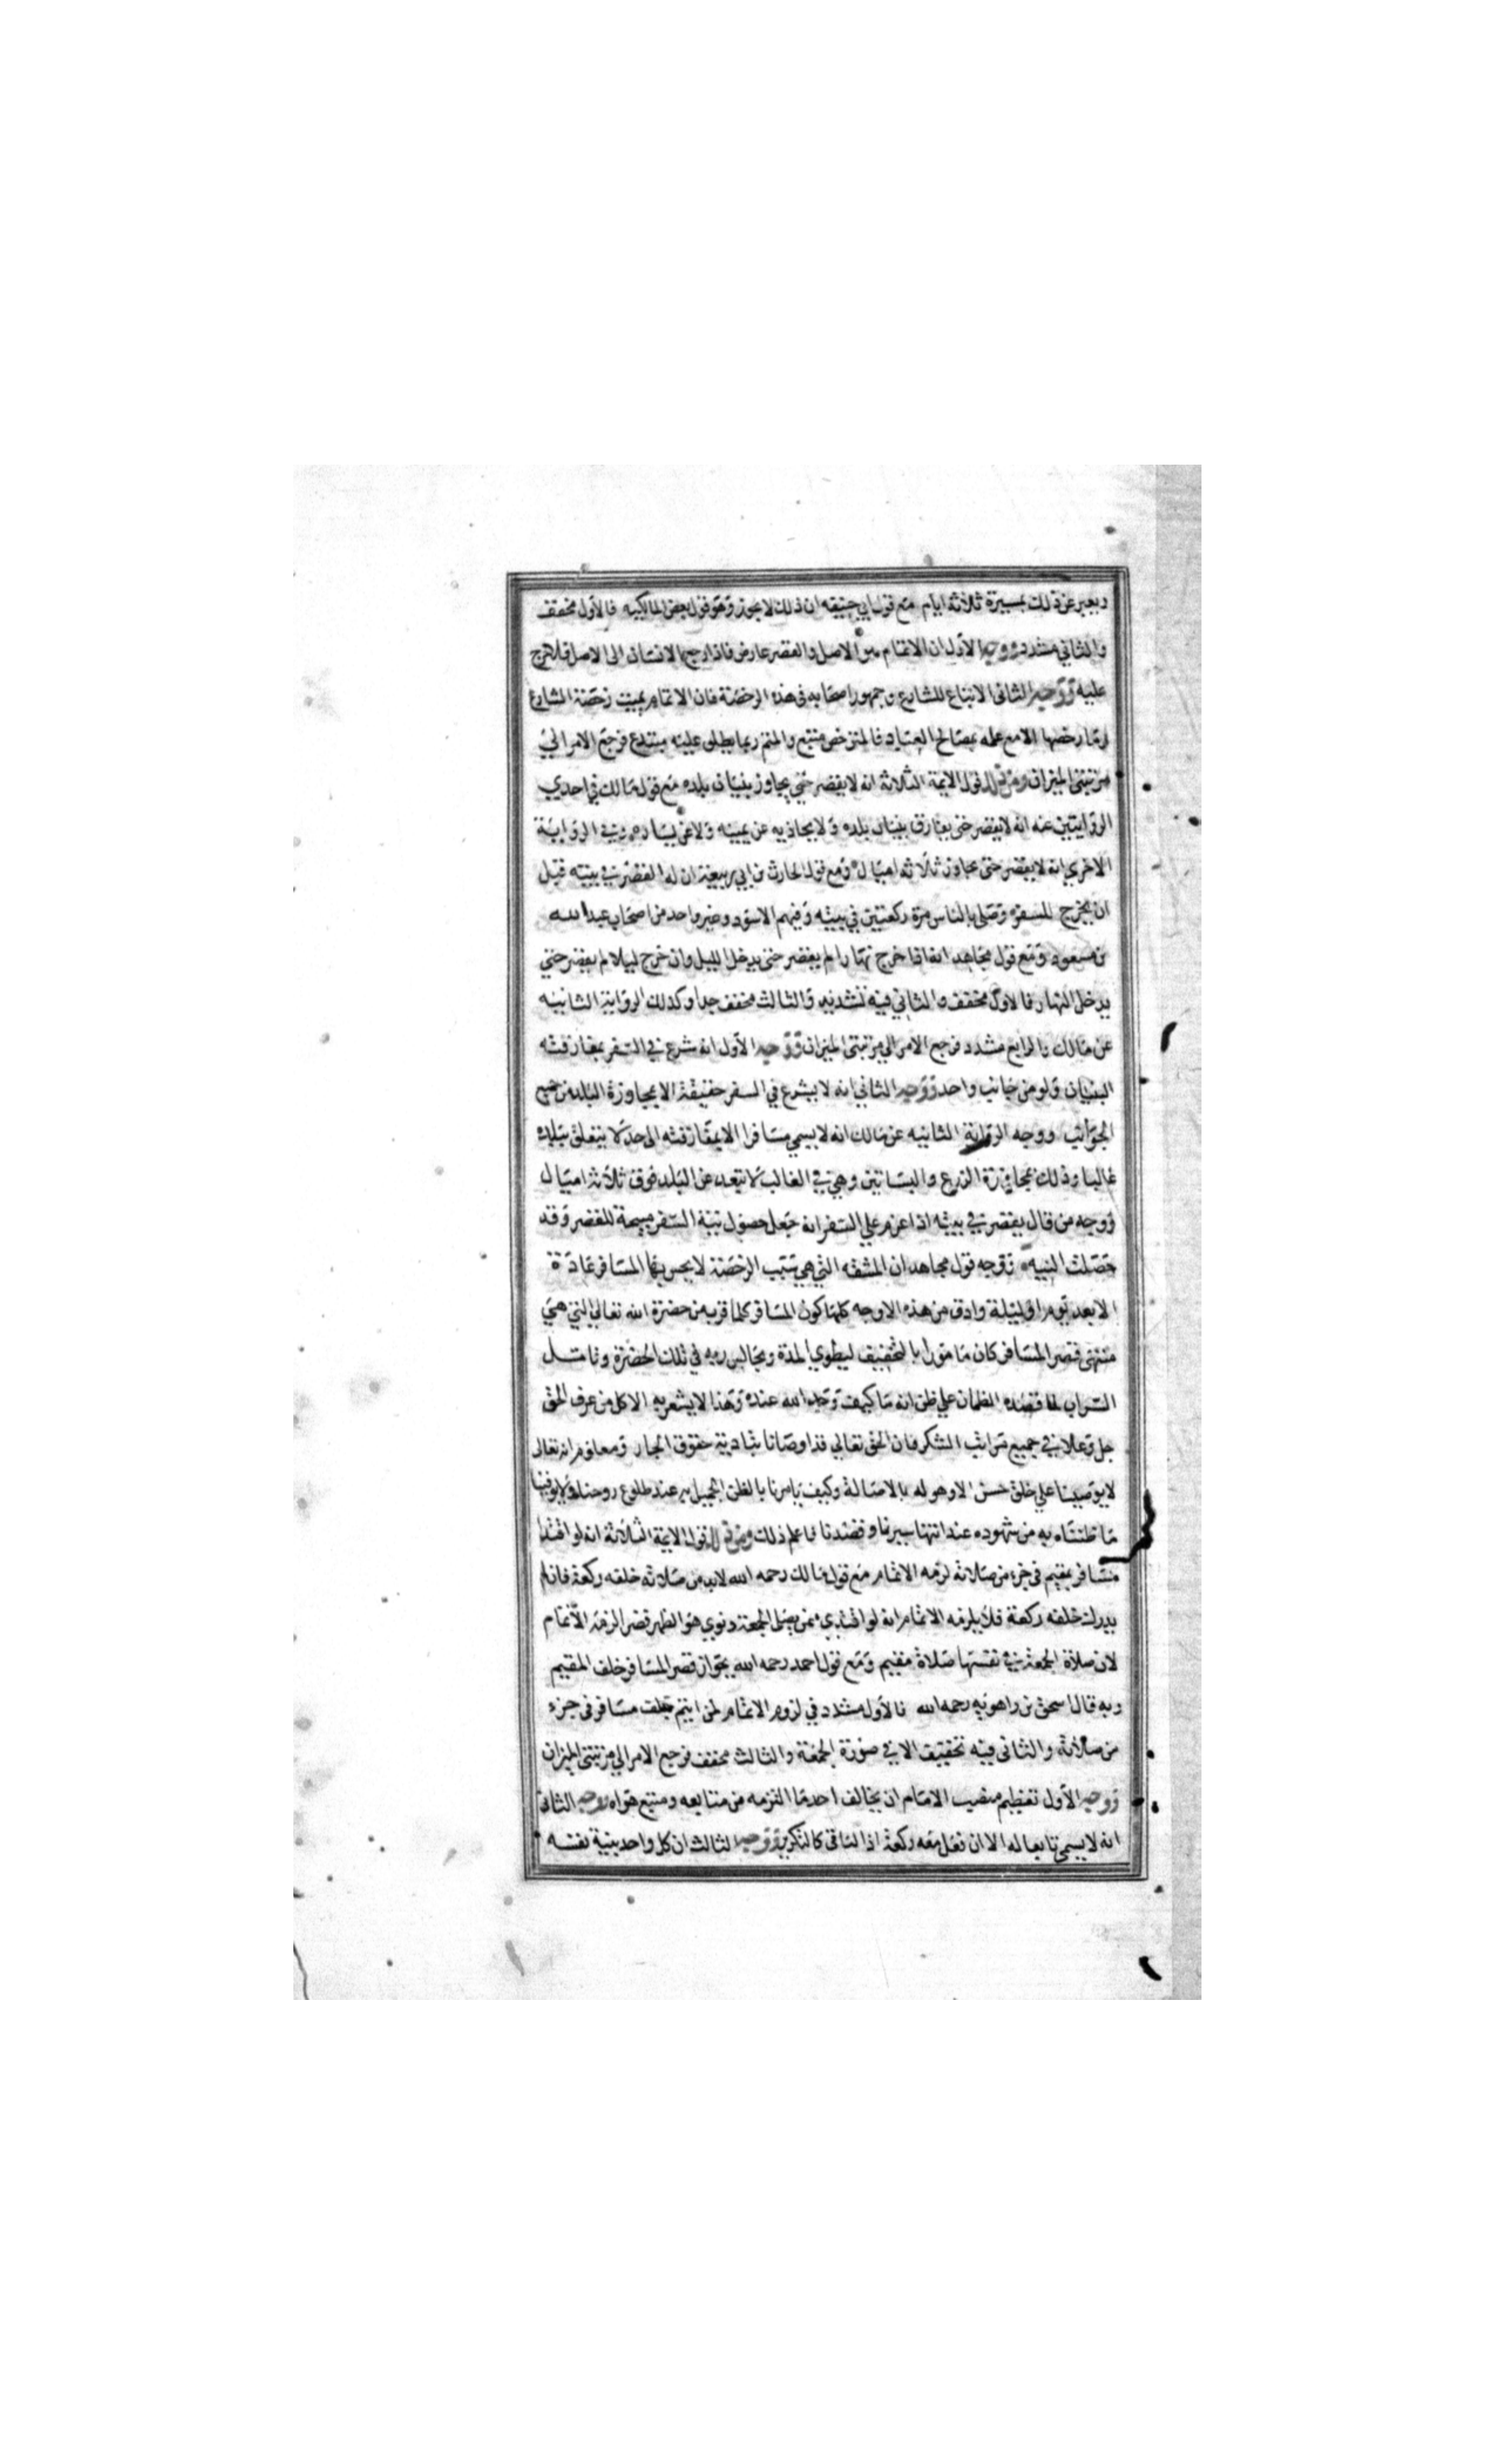 ويعبر عن ذلك بمسيرة ثلاثة ايام مع قول ابي حنيفه ان ذلك لا يجوز وهو قول بعض المالكيه فالاول مخفف
والثاني مشدد ووجه الاول ان الاتمام هو الاصل والقصر عارض فاذا رجع الانسان الى الاصل فلا حرج
عليه ووجه الثاني الاتباع للشارع وجمهور اصحابه في هذه الرخصة فان الاتمام يميت رخصة الشارع
وما رخصها الا مع علمه بمصالح العباد فالمترخص متبع والمتم ربما يطلق عليه مبتدع فرجع الامر الي
مرتبتي الميزان ومن ذلك قول الايمة الثلاثة انه لا يقصر حتي يجاوز بنيان بلده مع قول مالك في احدي
الروايتين عنه انه لا يقصر حتى يفارق بنيان بلده ولا يحاذيه عن يمينه ولا عن يساره وفي الرواية
الاخري انه لا يقصر حتى يجاوز ثلاثة اميال ومع قول الحارث بن ابي ربيعة ان له القصر في بيته قبل
ان يخرج للسفر وصلى بالناس مرة ركعتين في بيته وفيهم الاسود وغير واحد من اصحاب عبد الله
بن مسعود ومع قول مجاهد انه اذا خرج نهارا لم يقصر حتى يدخل الليل وان خرج ليلا لم يقصر حتي
يدخل النهار فالاول مخفف والثاني فيه تشديد والثالث مخفف جدا وكذلك الرواية الثانيه
عن مالك والرابع مشدد فرجع الامر الي مرتبتى الميزان ووجه الاول انه شرع في السفر بمفارقته
البنيان ولو من جانب واحد ووجه الثاني انه لا يشرع في السفر حقيقة الا بمجاوزة البلد من جميع
الجوانب ووجه الرواية الثانيه عن مالك انه لا يسمي مسافرا الا بمفارقته الى حد لا يتعلق ببلده
غالبا وذلك بمجاوزة الزرع والبساتين وهي في الغالب لا تبعد عن البلد فوق ثلاثة اميال
ووجه من قال يقصر في بيته اذا عزم علي السفر انه جعل حصول نية السفر مبيحة للقصر وقد
حصلت النيه ووجه قول مجاهد ان المشقه التي هي سبب الرخصة لا يحس بها المسافر عادة
الا بعد يوم او ليلة وادق من هذه الاوجه كلها كون المسافر كلما قرب من حضرة الله تعالي التي هي
منتهى قصر المسافر كان مامورا بالتخفيف ليطوي المدة ويجالس ربه في تلك الحضرة وتامل
السراب لما قصده الظمان علي ظن انه ما كيف وجد الله عنده وهذا لا يشعر به الا كل من عرف الحق
جل وعلا في جميع مراتب الشكر فان الحق تعالي قد اوصانا بتادية حقوق الجار ومعلوم انه تعالى
لا يوصينا علي خلق حسن الا وهو له بالاصالة وكيف يامرنا بالظن الجميل به عند طلوع روحنا ولا يوفينا
ما ظنناه به من شهوده عند انتها سيرنا وقصدنا فاعلم ذلك ومن ذلك قول الايمة الثلاثة انه لو اقتدا
مسافر بمقيم في جزء من صلاته لزمه الاتمام مع قول مالك رحمه الله لابد من صلاته خلفه ركعة فان لم
يدرك خلفه ركعة فلا يلزمه الاتمام انه لو اقتدي بمن يصلى الجمعة ونوي هو الظهر قصرا لزمه الاتمام
لان صلاة الجمعة في نفسها صلاة مقيم ومع قول احمد رحمه الله بجواز قصر المسافر خلف المقيم
وبه قال اسحق بن راهويه رحمه الله فالاول مشدد في لزوم الاتمام لمن ايتم خلف مسافر في جزء
من صلاته والثاني فيه تخفيف الا في صورة الجمعة والثالث مخفف فرجع الامر الي مرتبتى الميزان
ووجه الاول تعظيم منصب الامام ان يخالف احد ما التزمه من متابعه ومتبع هواه ووجه الثاني
انه لا يسمى تابعا له الا ان فعل معه ركعة اذ الباقي كالتكرير ووجه الثالث ان كل واحد بنية نفسه